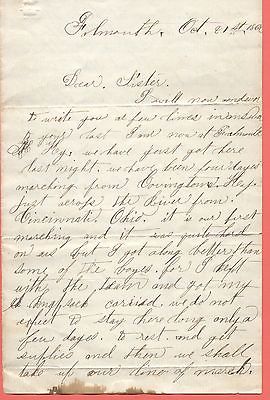 Folmouth, Oct. 21st, 186
Dear Sister.
I will now
to write you a few lines in
to your last I am now at
Ky. we have just got here
last night. we have been four days
marching from Covington Ky.
just across the River from
Cincinnatti Ohio. it is our first
marching and it was quite hard
on us but I got along better than
some of the boyes. for I kept
with the team and got my
knapsack carried. we do not
expect to stay here long only a
few dayes. to rest. and get
supplies and then we shall
take up our line of march.